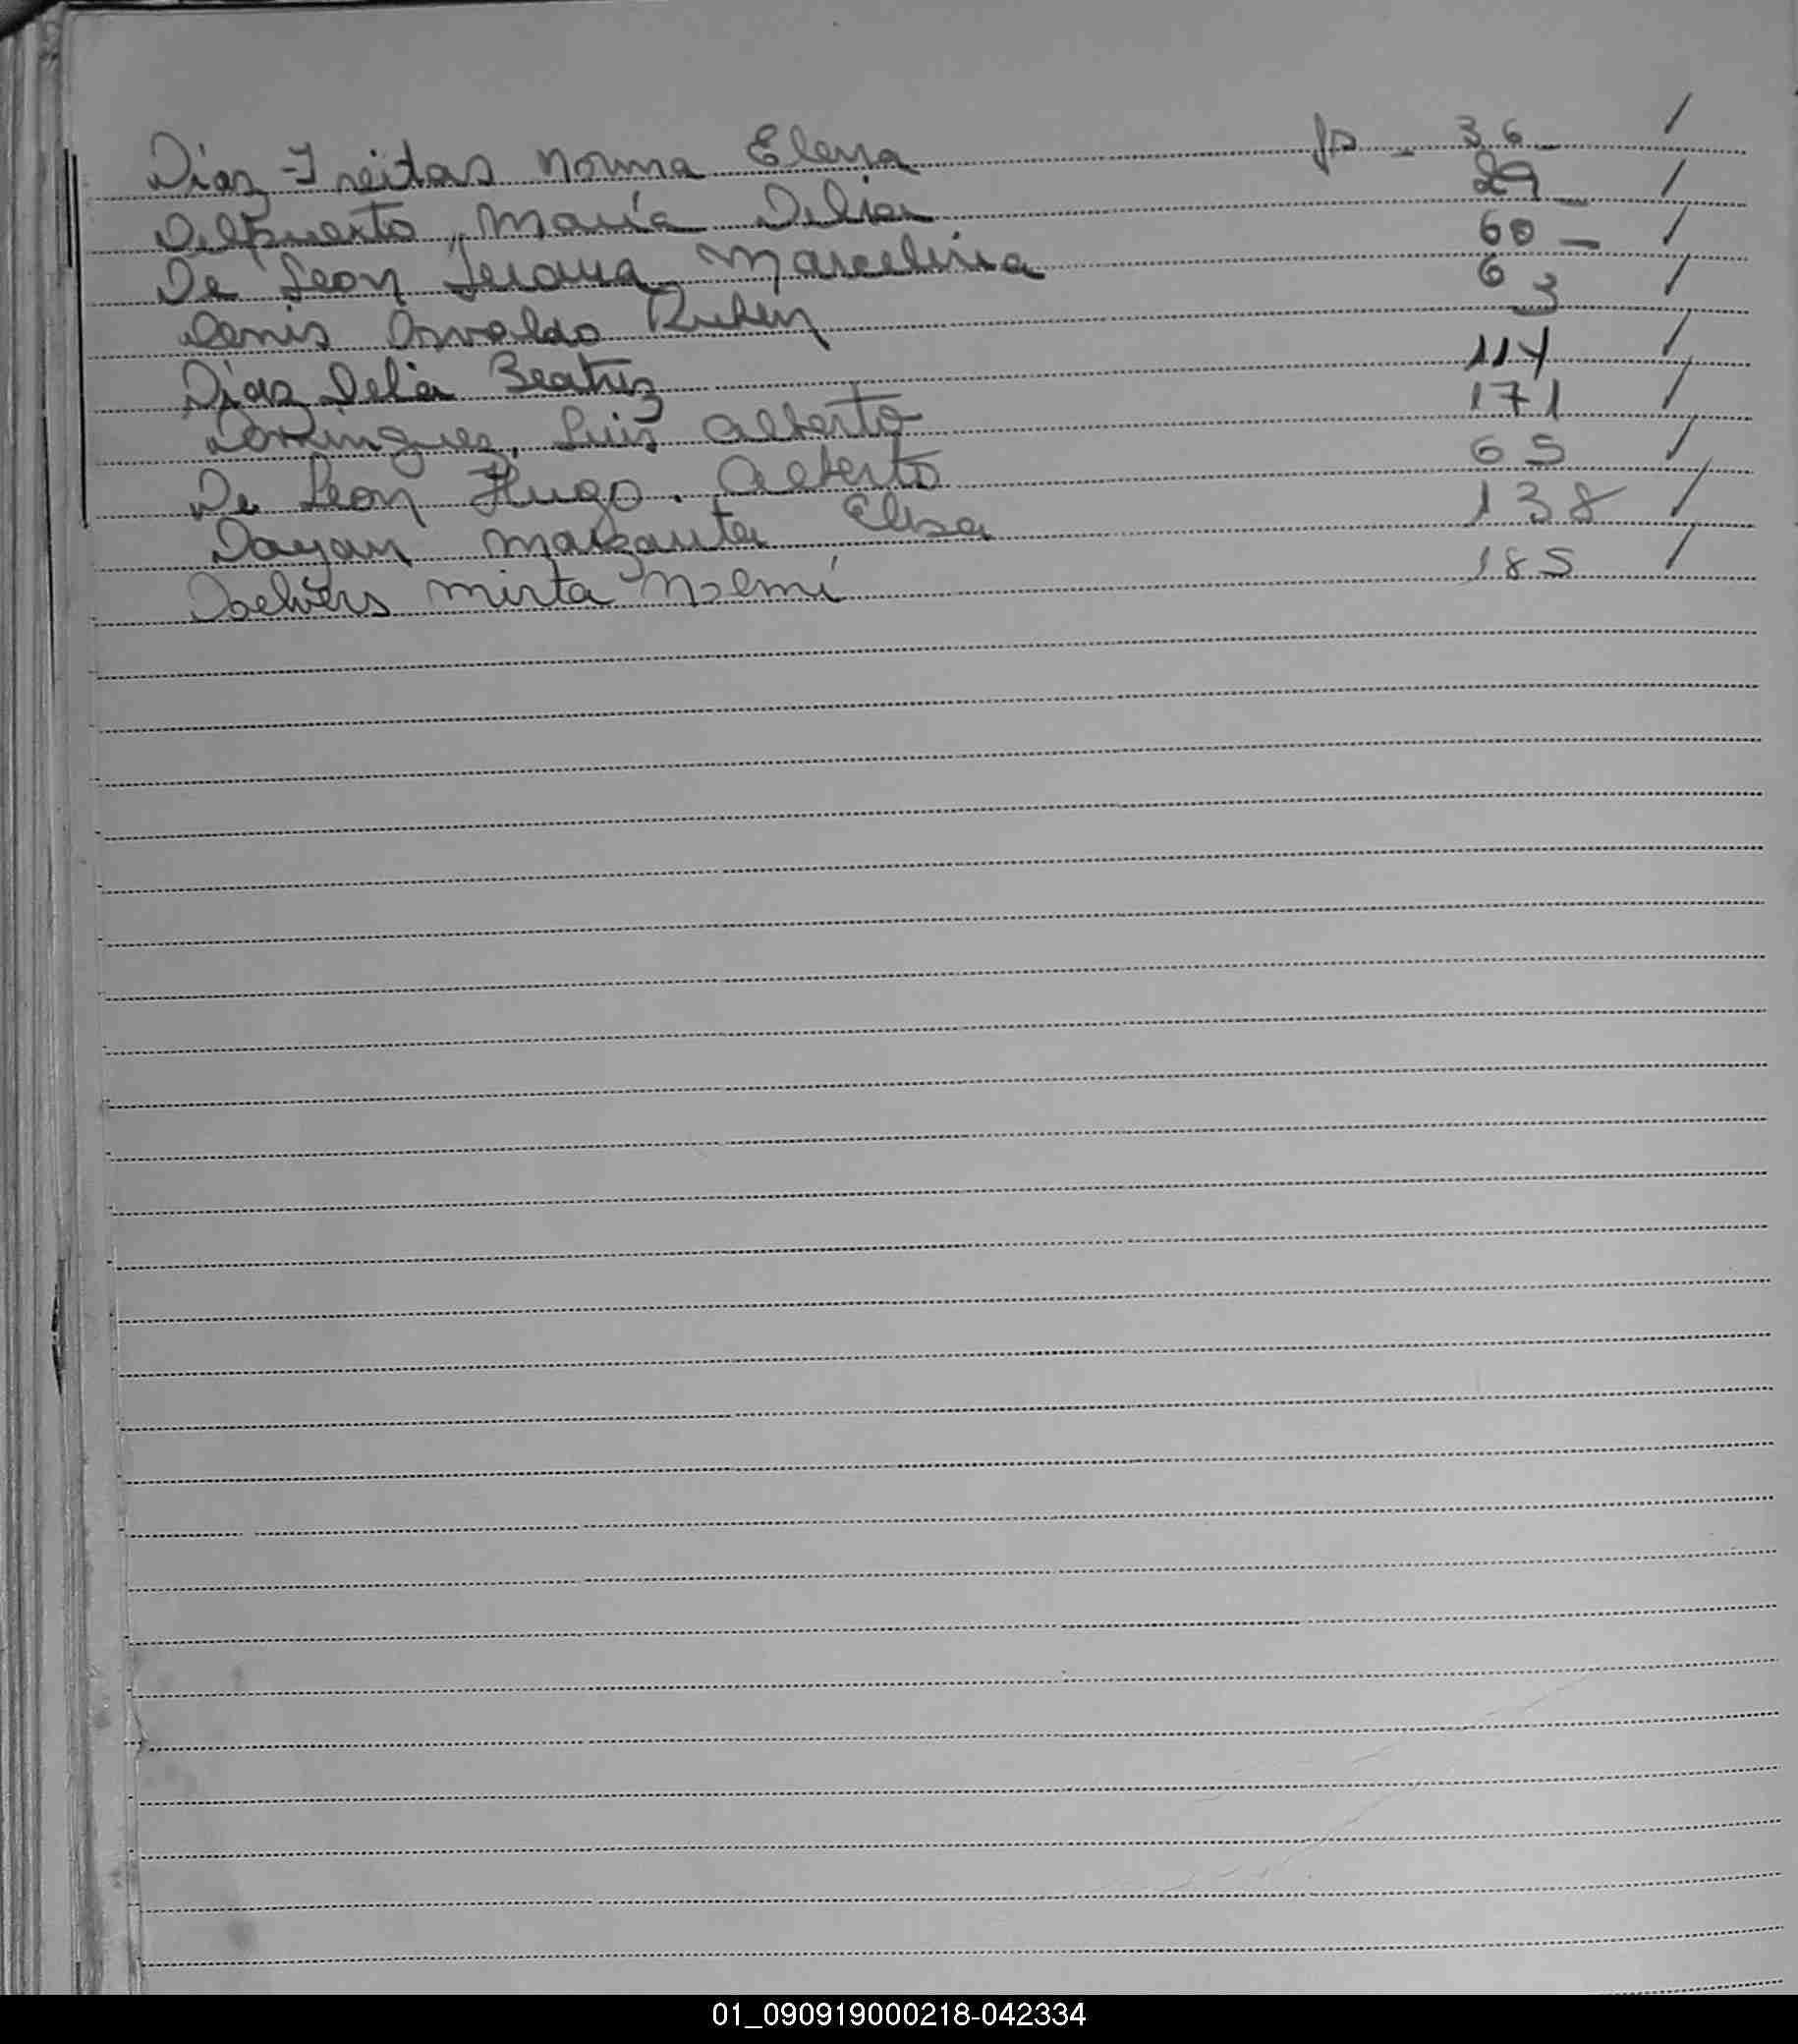 Diaz Freitas Norma Elena fs - 36 - /
Delpuerto, María Delia 29 - /
De Leon Marcelina 60 - /
Denis Osvaldo Ruben 63 /
Diaz Delia Beatriz 114 /
Dominguez, Luis Alberto 171 /
De Leon Hugo. Alberto 65 /
Dayan Margarita Elsa 138 /
Mirta Noemí 185 /
01_090919000218-042334